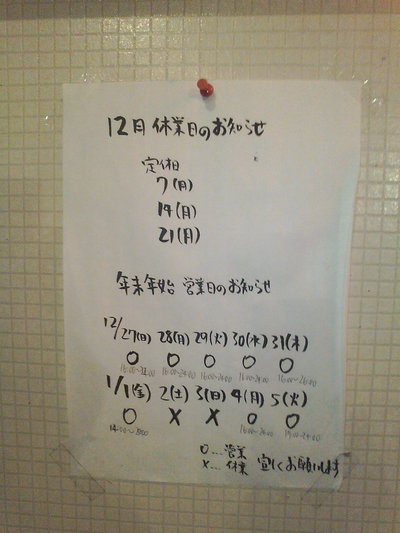 12月 休業日のお知らせ
定休日
7(月)
14(月)
21(月)
年末年始 営業日のお知らせ
12/27(日) 28(月) 29(火) 30(水) 31(木)
○ ○ ○ ○ ○
16:00~24:00 16:00~24:00 16:00~24:00
1/1(金) 2(土) 3(日) 4(月) 5(火)
○ × × ○ ○
16:00~24:00
○...営業
×...休業 宜しくお願いします